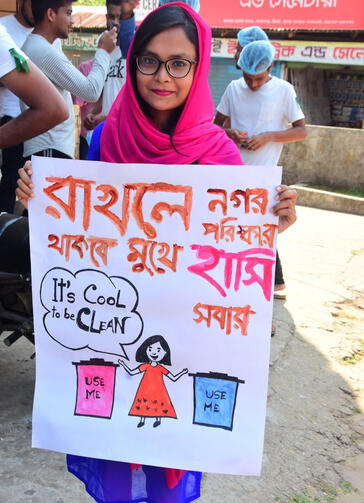 এড সেনেটারী
ট্রিক এন্ড সেনে
রাখলে নগর
পরিষ্কার
থাকবে মুখে হাসি
সবার
It's Cool
to be CLEAN
USE
ME
USE
ME